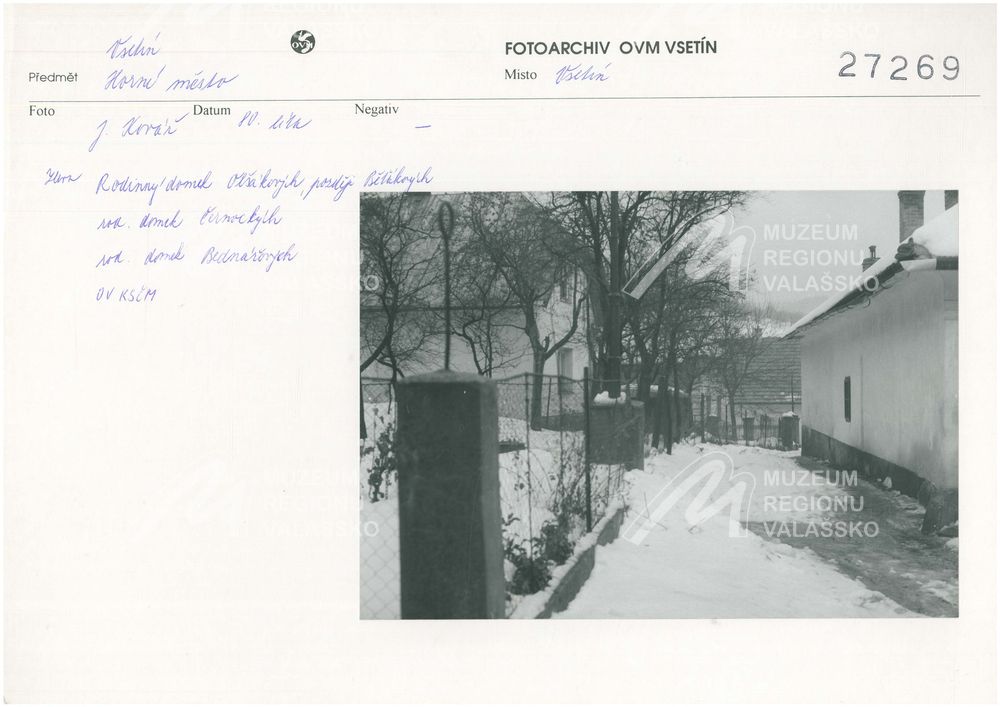 Vsetín
OVM
FOTOARCHIV OVM VSETÍN
Předmět Horní město
Místo Vsetín
27269
Foto J. Kovář Datum 80. léta Negativ —
Zleva Rodinný domek Olšákových, později Běťákových
rod. domek Černockých
rod. domek Bednářových
OV KSČM
MUZEUM
REGIONU
VALAŠSKO
MUZEUM
REGIONU
VALAŠSKO